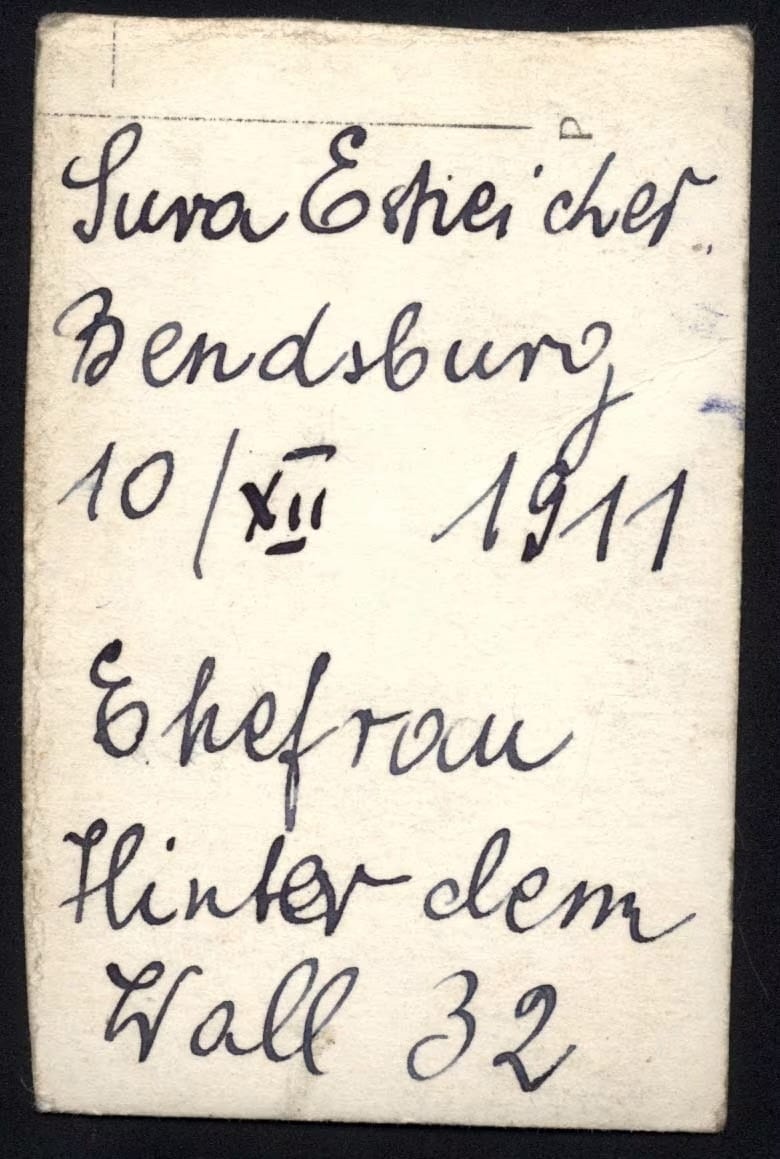 P
Sura Estreicher.
Bendsburg
10/XII 1911
Ehefrau
Hinter dem
Wall 32